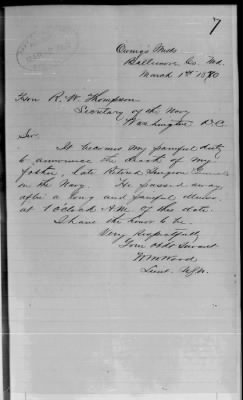 7
Owings Mills
Baltimore Co. Md.
March 1st 1880
Hon R. W. Thompson
Secretary of the Navy
Washington D.C.
Sir,
It becomes my painful duty
to announce the death of my
father, late Retired Surgeon General
in the Navy. He passed away
after a long and painful illness,
at 1 o'clock A.M. of this date.
I have the honor to be
Very Respectfully
Your Obdt Servant
W M Wood
Lieut. U.S.N.